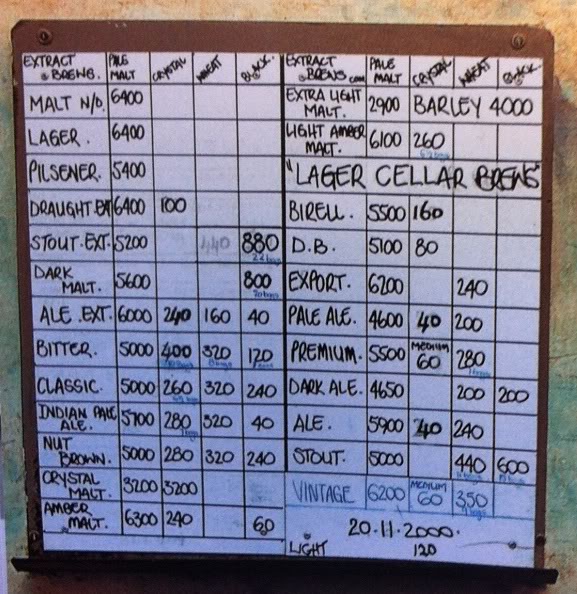 EXTRACT BREWS. PALE MALT CRYSTAL WHEAT BLACK.
MALT N/D. 6400
LAGER. 6400
PILSENER. 5400
DRAUGHT.EXT 6400 100
STOUT.EXT. 5200 440 880
22 bags
DARK MALT. 5600 800
20 bags
ALE.EXT. 6000 240 160 40
BITTER. 5000 400 320 120
CLASSIC. 5000 260 320 240
INDIAN PALE ALE. 5700 280 320 40
NUT BROWN. 5000 280 320 240
CRYSTAL MALT. 3200 3200
AMBER MALT. 6300 240 60
EXTRACT BREWS. PALE MALT CRYSTAL WHEAT BLACK.
EXTRA LIGHT MALT. 2900 BARLEY 4000
LIGHT AMBER MALT. 6100 260
"LAGER CELLAR BREWS"
BIRELL. 5500 160
D.B. 5100 80
EXPORT. 6200 240
PALE ALE. 4600 40 200
PREMIUM. 5500 MEDIUM 60 280
DARK ALE. 4650 200 200
ALE. 5900 40 240
STOUT. 5000 440 600
VINTAGE 6200 MEDIUM 60 350
20.11.2000.
LIGHT 120